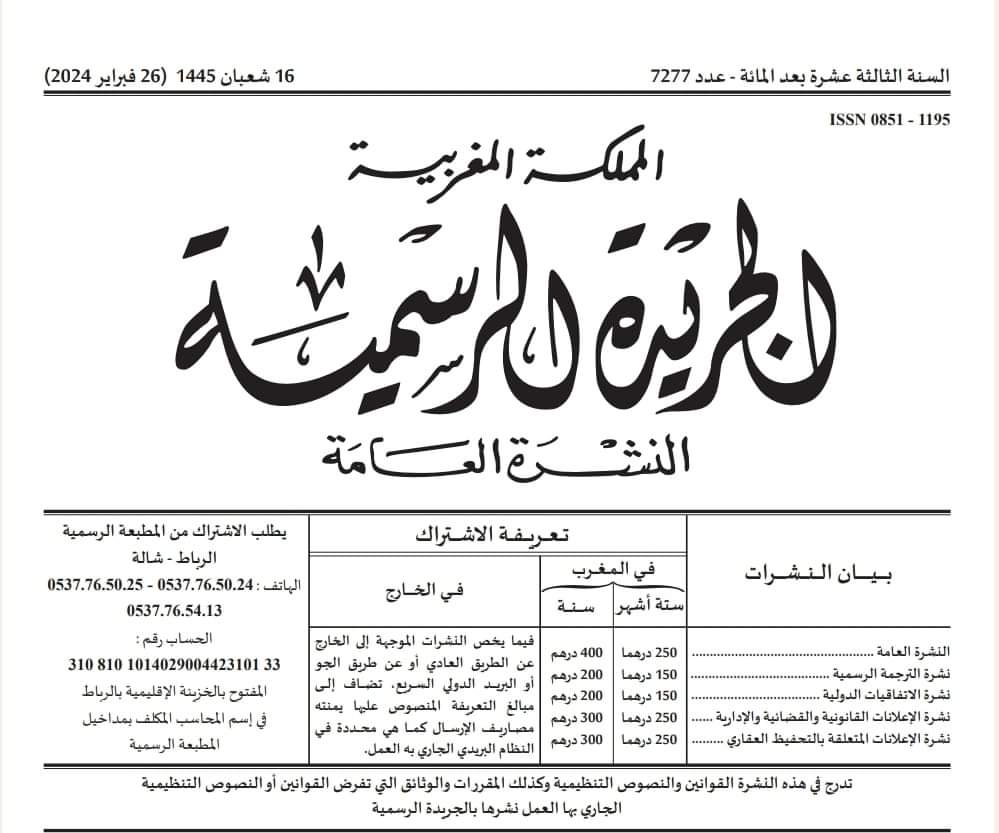 السنة الثالثة عشرة بعد المائة - عدد 7277
16 شعبان 1445 (26 فبراير 2024)
ISSN 0851 - 1195
المملكة المغربية
الجريدة الرسمية
النشرة العامة
بيـان النـشرات
تـعـريـفـة الاشـتـراك
في المـغـرب
ستة أشهر
سـنـة
في الخـارج
النشرة العامة ............ 250 درهما 400 درهم
نشرة الترجمة الرسمية ............ 150 درهما 200 درهم
نشرة الاتفاقيات الدولية ............ 150 درهما 200 درهم
نشرة الإعلانات القانونية والقضائية والإدارية ...... 250 درهما 300 درهم
نشرة الإعلانات المتعلقة بالتحفيظ العقاري ......... 250 درهما 300 درهم
فيما يخص النشرات الموجهة إلى الخارج
عن الطريق العادي أو عن طريق الجو
أو البريد الدولي السريع، تضاف إلى
مبالغ التعريفة المنصوص عليها يمنته
مصاريف الإرسال كما هي محددة في
النظام البريدي الجاري به العمل.
يطلب الاشتراك من المطبعة الرسمية
الرباط - شالة
الهاتف : 0537.76.50.24 - 0537.76.50.25
0537.76.54.13
الحساب رقم :
310 810 1014029004423101 33
المفتوح بالخزينة الإقليمية بالرباط
في إسم المحاسب المكلف بمداخيل
المطبعة الرسمية
تدرج في هذه النشرة القوانين والنصوص التنظيمية وكذلك المقررات والوثائق التي تفرض القوانين أو النصوص التنظيمية
الجاري بها العمل نشرها بالجريدة الرسمية